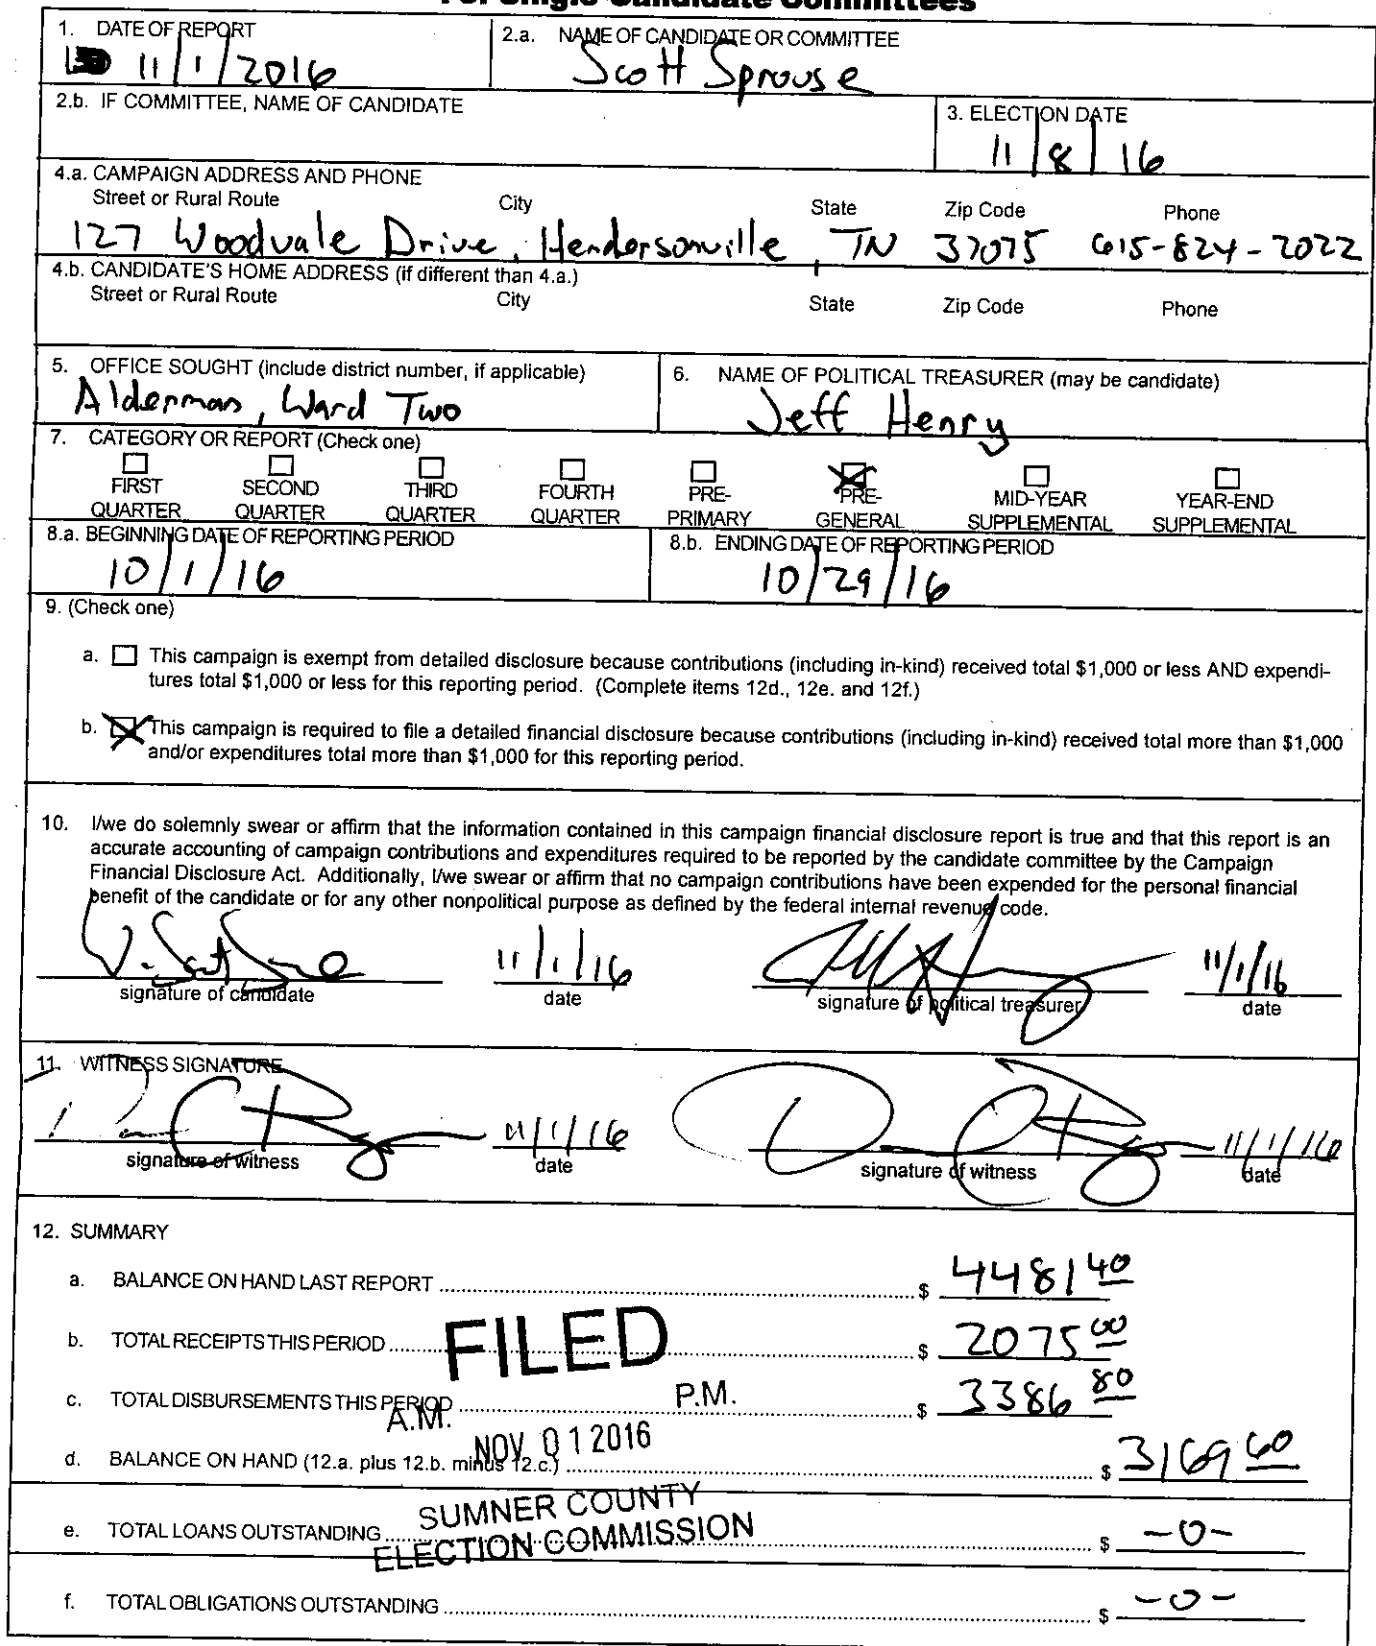 For Single-Candidate Committees
1. DATE OF REPORT
11/1/2016
2.a. NAME OF CANDIDATE OR COMMITTEE
Scott Sprouse
2.b. IF COMMITTEE, NAME OF CANDIDATE
3. ELECTION DATE
11/8/16
4.a. CAMPAIGN ADDRESS AND PHONE
Street or Rural Route City State Zip Code Phone
127 Woodvale Drive, Hendersonville, TN 37075 615-824-2022
4.b. CANDIDATE'S HOME ADDRESS (if different than 4.a.)
Street or Rural Route City State Zip Code Phone
5. OFFICE SOUGHT (include district number, if applicable)
Alderman, Ward Two
6. NAME OF POLITICAL TREASURER (may be candidate)
Jeff Henry
7. CATEGORY OR REPORT (Check one)
FIRST QUARTER
SECOND QUARTER
THIRD QUARTER
FOURTH QUARTER
PRE-PRIMARY
PRE-GENERAL
MID-YEAR SUPPLEMENTAL
YEAR-END SUPPLEMENTAL
8.a. BEGINNING DATE OF REPORTING PERIOD
10/1/16
8.b. ENDING DATE OF REPORTING PERIOD
10/29/16
9. (Check one)
a. This campaign is exempt from detailed disclosure because contributions (including in-kind) received total $1,000 or less AND expendi-
tures total $1,000 or less for this reporting period. (Complete items 12d., 12e. and 12f.)
b. This campaign is required to file a detailed financial disclosure because contributions (including in-kind) received total more than $1,000
and/or expenditures total more than $1,000 for this reporting period.
10. I/we do solemnly swear or affirm that the information contained in this campaign financial disclosure report is true and that this report is an
accurate accounting of campaign contributions and expenditures required to be reported by the candidate committee by the Campaign
Financial Disclosure Act. Additionally, I/we swear or affirm that no campaign contributions have been expended for the personal financial
benefit of the candidate or for any other nonpolitical purpose as defined by the federal internal revenue code.
11/1/16 11/1/16
signature of candidate date signature of political treasurer date
11. WITNESS SIGNATURE
11/1/16 11/1/16
signature of witness date signature of witness date
12. SUMMARY
a. BALANCE ON HAND LAST REPORT $ 4481 40
b. TOTAL RECEIPTS THIS PERIOD $ 2075 00
FILED
c. TOTAL DISBURSEMENTS THIS PERIOD $ 3386 80
A.M. P.M.
NOV 01 2016
d. BALANCE ON HAND (12.a. plus 12.b. minus 12.c.) $ 3169 60
SUMNER COUNTY
e. TOTAL LOANS OUTSTANDING $ -0-
ELECTION COMMISSION
f. TOTAL OBLIGATIONS OUTSTANDING $ -0-